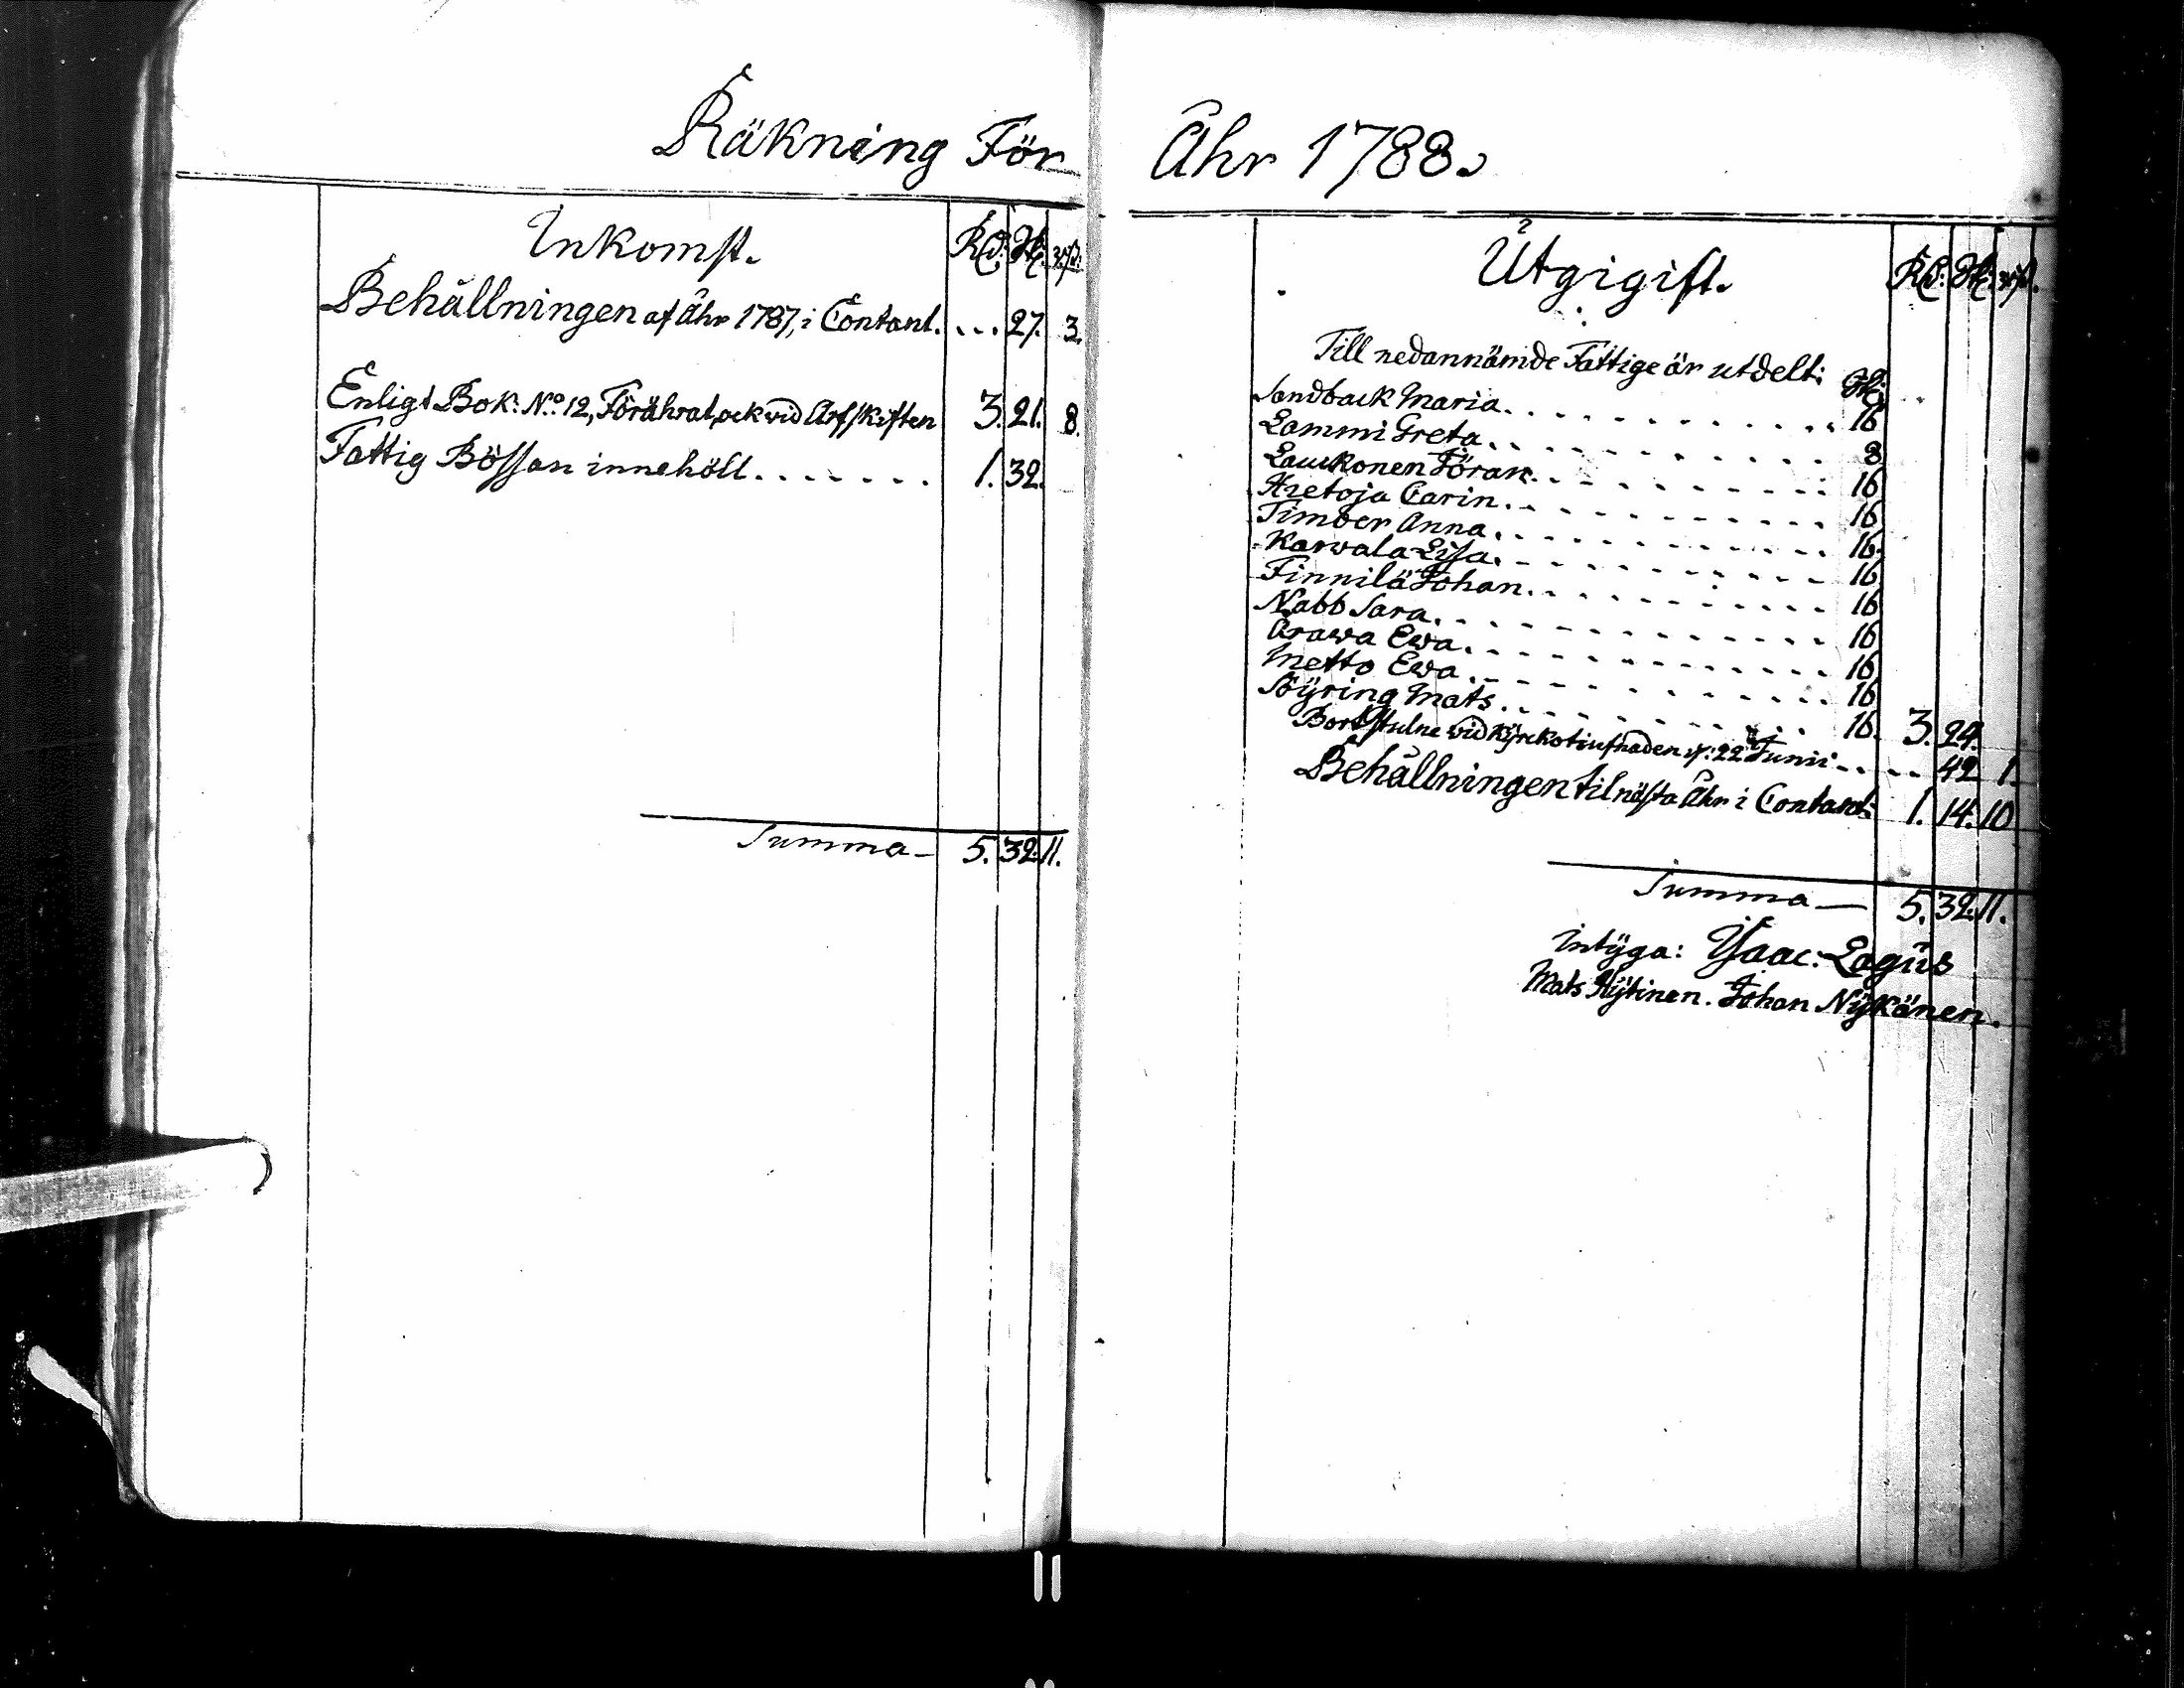 Räkning För
Inkomst. Rd: ſk: rſt:
Behållningen af Åhr 1787, i Contant. ... 27. 3.
Enligt Bok: N:o 12, Förährat, ock vid Arfskiften 3. 21. 8.
Fattig Bössan innehöll ....... 1. 32.
Summa — 5. 32. 11.
Åhr 1788.
Utgigift. Rd: ſk: rſt.
Till nedannämde Fattige är utdelt: ſk:
Sandback Maria. 16
Lammi Greta. 8
Lauckonen Jöran. 16
Hietoja Carin. 16
Timber Anna. 16.
Karvala Lisa. 16
Finnilä Johan. 16
Nabb Sara. 16
Arawa Ewa. 16
Metto Ewa. 16
Böyring Mats. 16. 3. 24.
Bortstulne vid Kyrckotiufnaden d: 22 Junii .... 42. 1.
Behållningen til nästa Åhr i Contant: 1. 14. 10
Summa — 5. 32. 11.
intyga: Isaac: Lagus
Mats Hytinen. Johan Nykänen.